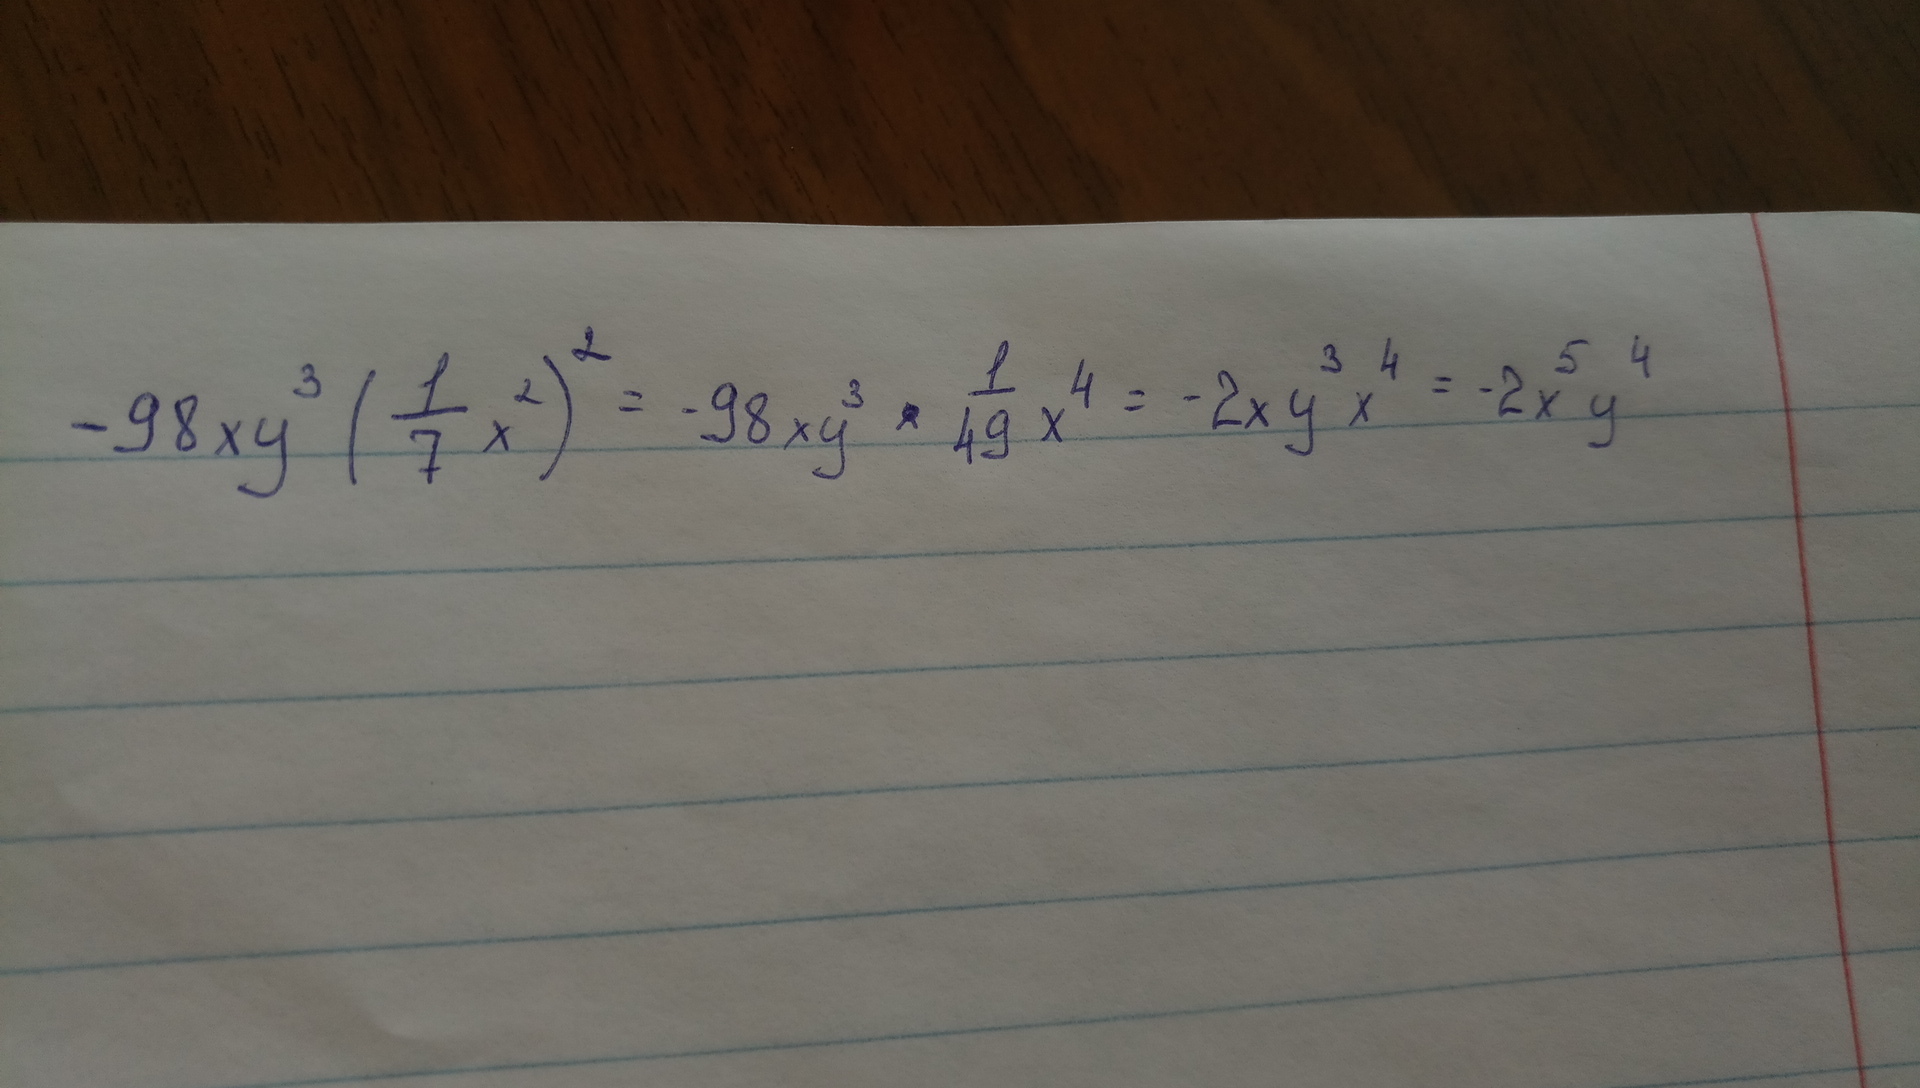 -98xy³(1/7 x²)² = -98xy³ · 1/49 x⁴ = -2xy³x⁴ = -2x⁵y⁴